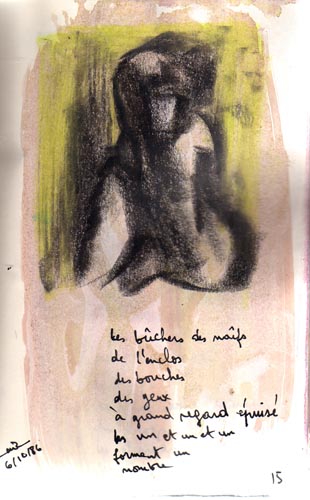 Les bûchers des naïfs
de l'enclos
des bouches
des yeux
à grand regard épuisé
les un et un et un
forment un
nombre
6/10/86
15